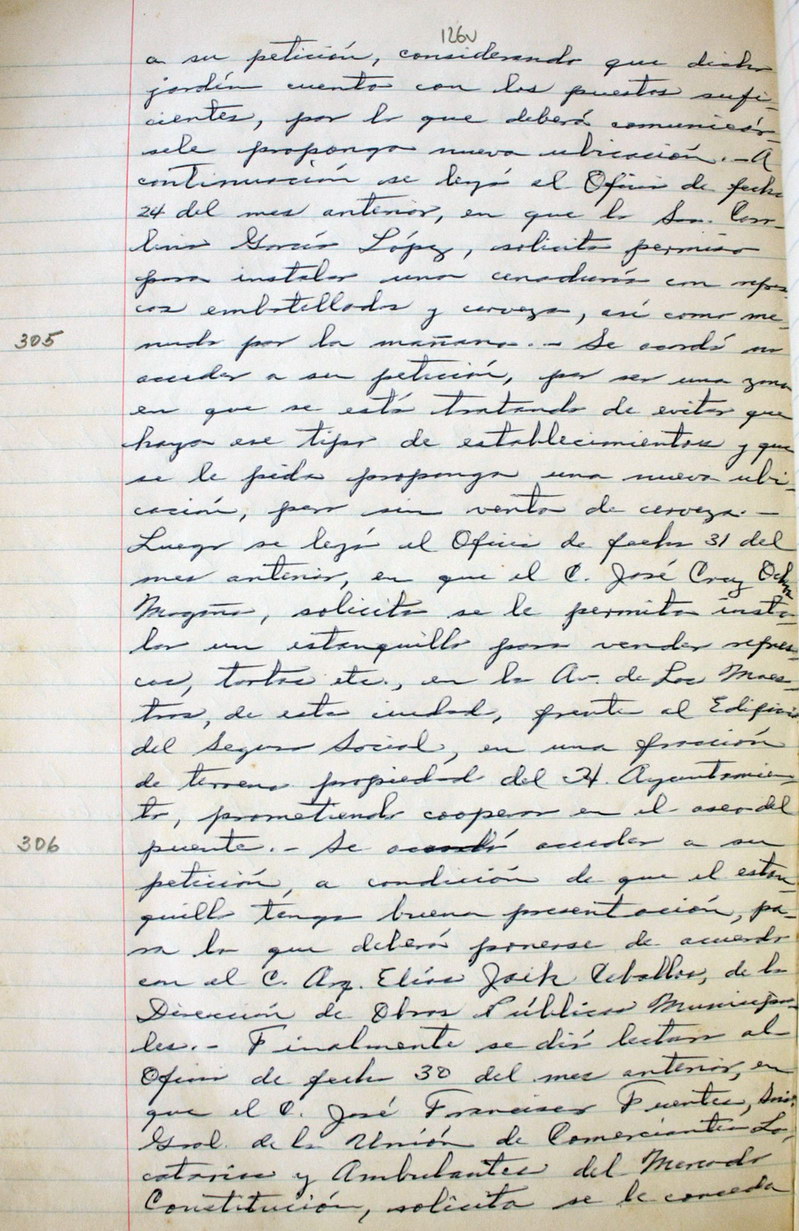 126v
a su petición, considerando que dicho
jardín cuenta con los puestos sufi-
cientes, por lo que deberá comunicár-
sele proponga nueva ubicación.- A
continuación se leyó el Oficio de fecha
24 del mes anterior, en que la Sra. Caro-
lina García López, solicita permiso
para instalar una cenaduría con refres-
cos embotellados y cerveza, así como me-
305 nudo por la mañana.- Se acordó no
acceder a su petición, por ser una zona
en que se está tratando de evitar que
haya ese tipo de establecimientos y que
se le pida proponga una nueva ubi-
cación, pero sin venta de cerveza.-
Luego se leyó el Oficio de fecha 31 del
mes anterior, en que el C. José Cruz Ochoa
Magaña, solicita se le permita insta-
lar un estanquillo para vender refres-
cos, tortas etc., en la Av. de Los Maes-
tros, de esta ciudad, frente al Edificio
del Seguro Social, en una fracción
de terreno propiedad del H. Ayuntamien-
to, prometiendo cooperar en el aseo del
306 puente.- Se acordó acceder a su
petición, a condición de que el estan-
quillo tenga buena presentación, pa-
ra lo que deberá ponerse de acuerdo
con el C. Arq. Elías Jaik Ceballos, de la
Dirección de Obras Públicas Municipa-
les.- Finalmente se dió lectura al
Oficio de fecha 30 del mes anterior, en
que el C. José Francisco Fuentes, Srio.
Gral. de la Unión de Comerciantes Lo-
catarios y Ambulantes del Mercado
Constitución, solicita se le conceda